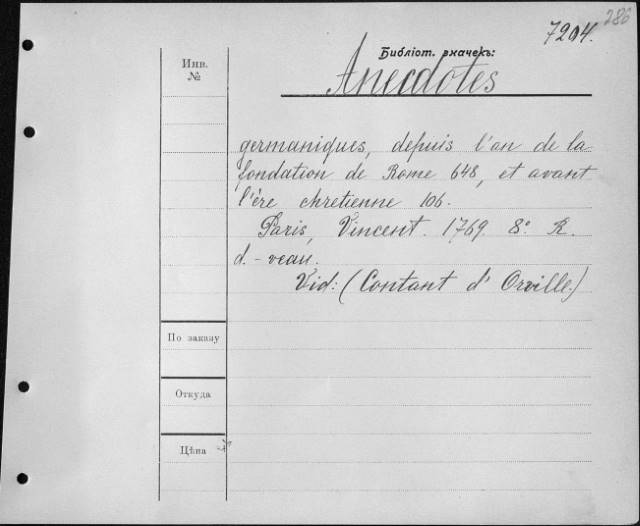 286
7204.
Библіот. значекъ:
Инв.
№
Anecdotes
germaniques, depuis l'an de la
fondation de Rome 648, et avant
l'ère chretienne 106.
Paris, Vincent. 1769. 8º. R.
d. - veau.
Vid: (Contant d'Orville.)
По заказу
Откуда
Цѣна